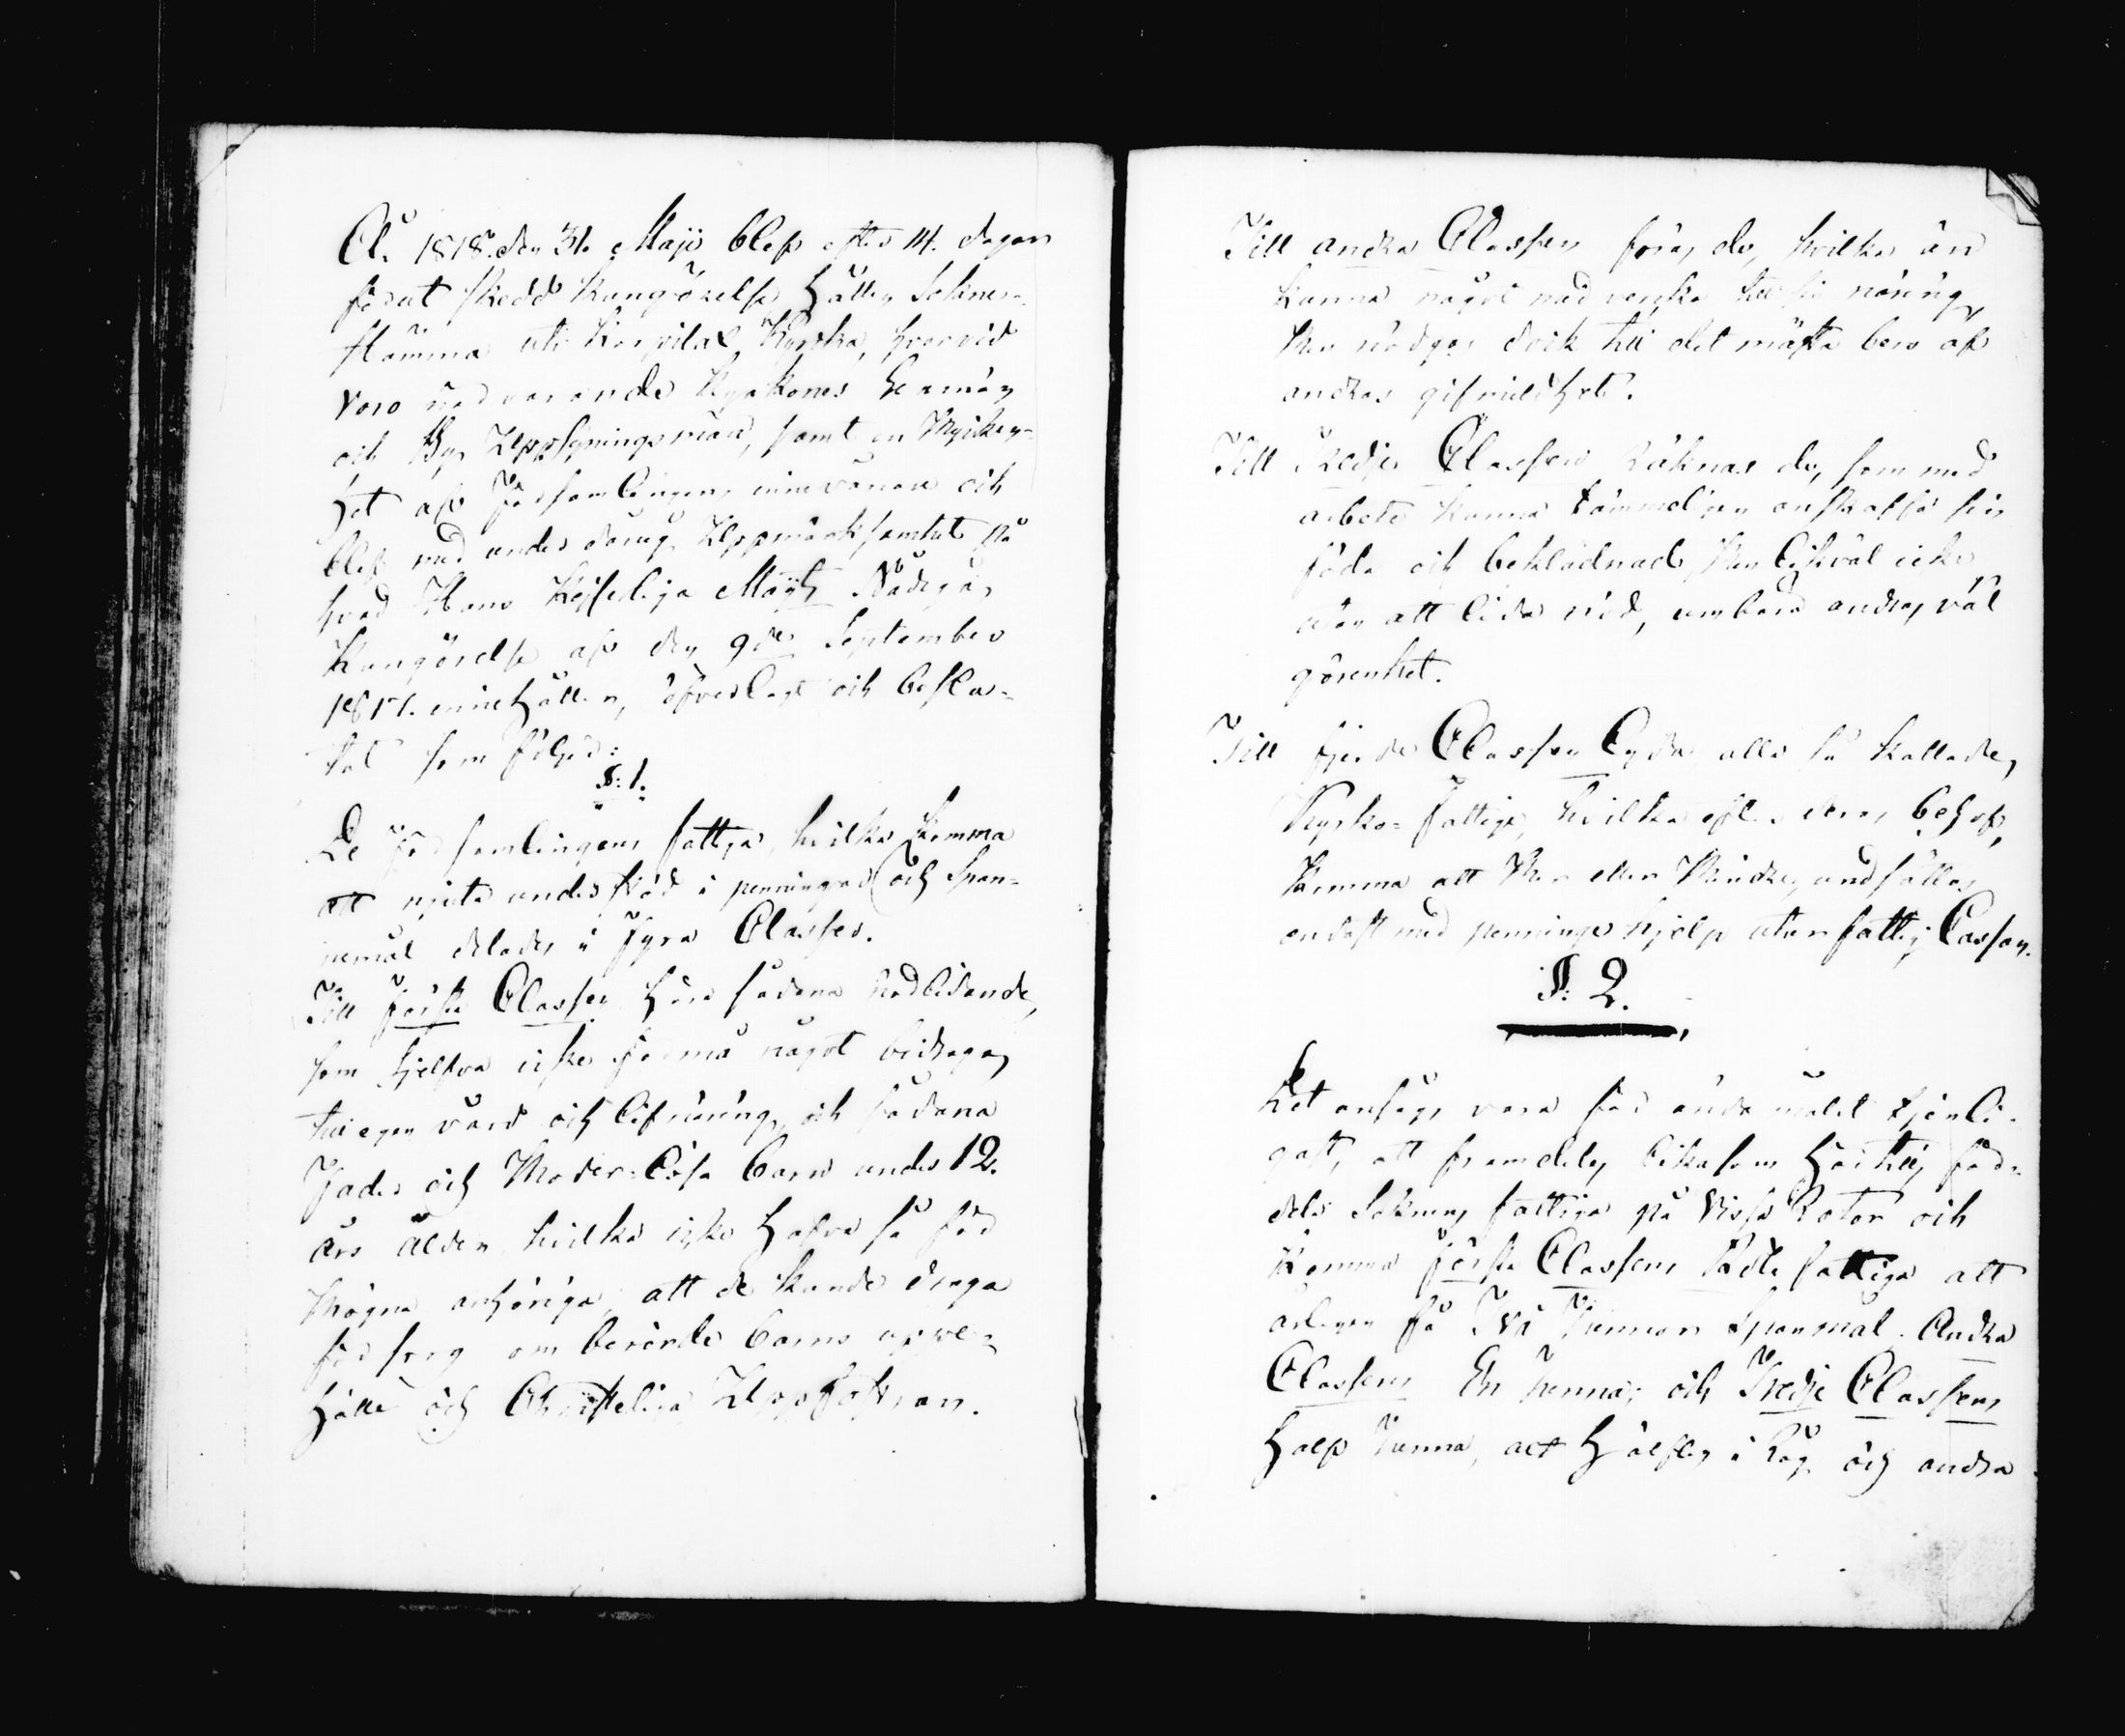 År 1818. den 31. Maji blef efter 14. dagar
förut skedd kungörelse hållen Sokne-
stämma uti Hospitals Kyrka, hvarvid
voro närvarande Kyrkones
och By Uppsyningsmän, samt en Mycken-
het af Församlingens innevånare och
blef med Uppmärksamhet på
hvad Hans Kejserliga Majts Nådiga
Kungörelse af den 9de September
1817. innehåller, öfverlagt och beslu-
tat som följer:
§: 1.
De Församlingens fattiga, hvilka komma
att njuta understöd i penningar och Span-
nemål delades i Fyra Classer.
Till Förste Classen höra sådana Nödlidande,
som sjelfva icke förmå något bidraga
till egen vård och lifnäring, och sådana
Fader och Moder-lösa barn under 12.
års ålder, hvilka icke hafva så för
mögna anhöriga, att de kunde draga
försorg om berörde barns uppe-
hälle och Christeliga Uppfostran.
Till andra Classen föras de, hvilka än
kunna något medverka till sin näring,
Men nödgas dock till det mästa bero af
andras gifmildhet.
Till Tredje Classen räknas de, som med
arbete kunna tämmeligen anskaffa sin
föda och beklädnad, Men likväl icke
utan att lida nöd, umbära andras väl
görenhet.
Till fjerde Classen lyda alla så kallade
Kyrko-fattige, hvilka efter deras behof,
komma att Mer eller Mindre undfålla
endast med penninge hjelp utur fattig Cassan.
§: 2.
Det ansågs vara för ändamålet tjenli-
gast, att framdeles likasom härtills för-
dela Soknens fattiga på vissa Rotar och
komma förste Classens Rote fattiga att
årligen få Två Tunnor Spanmål. Andra
Classens En tunna; och Tredje Classens
Half Tunna, allt Hälften i Råg och andra